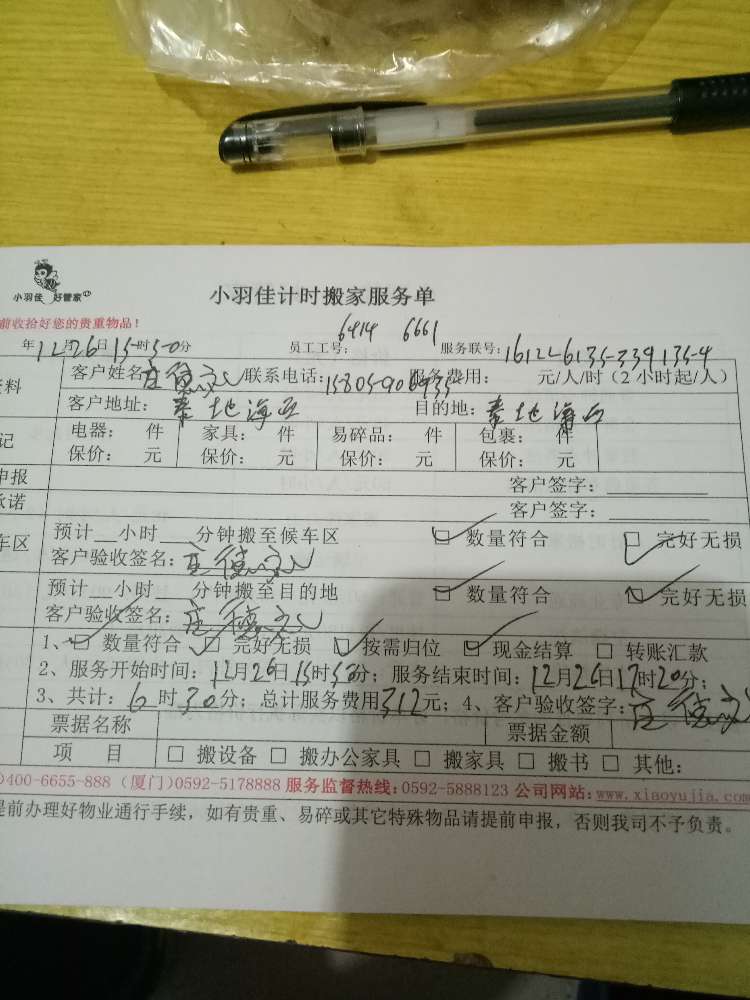 小羽佳 好管家
小羽佳计时搬家服务单
前收拾好您的贵重物品！
年12月26日15时50分 员工工号：6414 6661 服务联号：
资料 客户姓名： 联系电话： 服务费用： 元/人/时（2小时起/人）
客户地址：泰地海西 目的地：泰地海西
记 电器： 件 家具： 件 易碎品： 件 包裹： 件
保价： 元 保价： 元 保价： 元 保价： 元
申报 客户签字：
承诺 客户签字：
车区 预计__小时___分钟搬至候车区 ☑ 数量符合 ☑ 完好无损
客户验收签名：
预计__小时___分钟搬至目的地 ☑ 数量符合 ☑ 完好无损
客户验收签名：
1、☑ 数量符合 ☑ 完好无损 ☑ 按需归位 ☑ 现金结算 □ 转账汇款
2、服务开始时间：12月26日15时50分；服务结束时间：12月26日17时20分；
3、共计：6时30分；总计服务费用312元；4、客户验收签字：
票据名称 票据金额
项 目 □ 搬设备 □ 搬办公家具 □ 搬家具 □ 搬书 □ 其他：
400-6655-888（厦门）0592-5178888 服务监督热线：0592-5888123 公司网站：www.xiaoyujia.com
提前办理好物业通行手续，如有贵重、易碎或其它特殊物品请提前申报，否则我司不予负责。